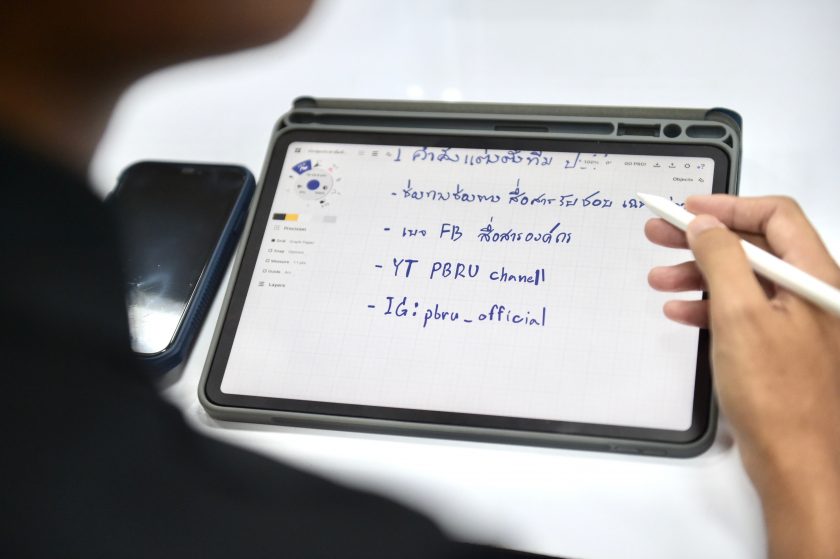 100% 0° GO PRO!
1 คำสั่งแต่งตั้งทีม
Objects
- ช่องทางช่องทาง สื่อสารรับชอบ
- เพจ FB สื่อสารองค์กร
- YT PBRU chanell
- IG: pbru_official
Precision
Grid Graph Paper
Snap Options
Measure
Guide
Layers